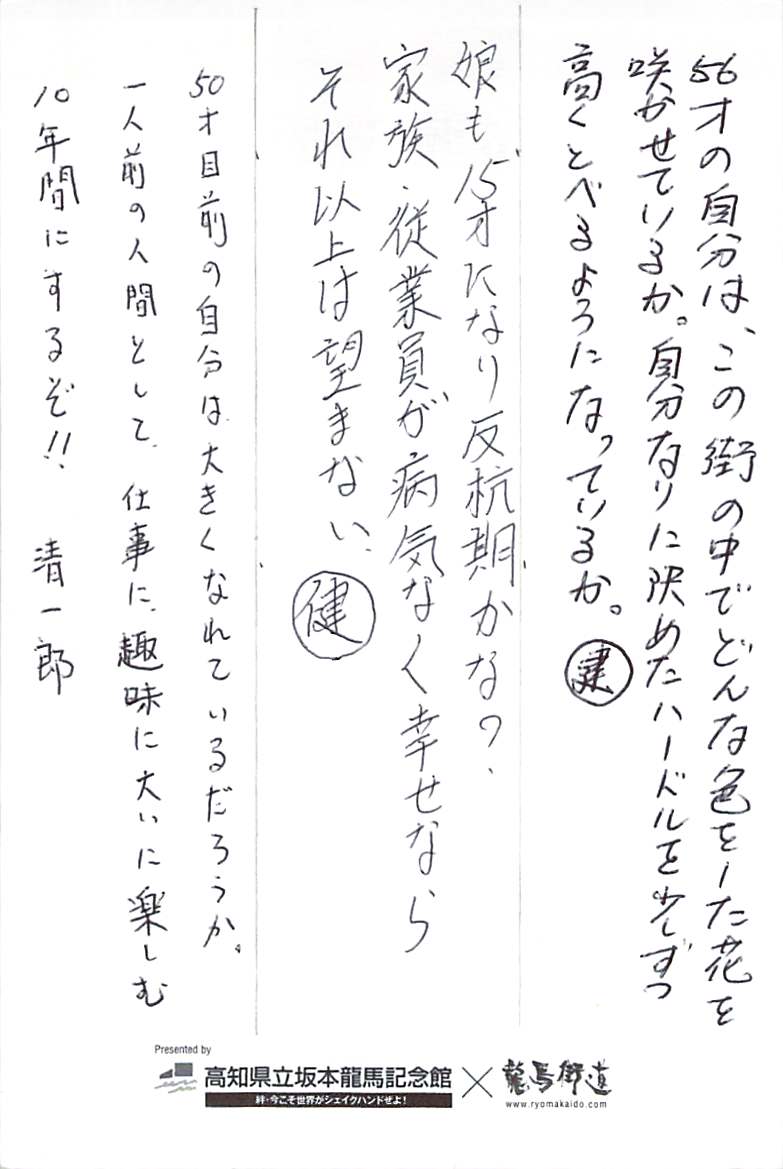 56才の自分は、この街の中でどんな色をした花を
咲かせているか。自分なりに決めたハードルを少しずつ
高くとべるようになっているか。 健
娘も15才になり反抗期かなの、
家族・従業員が病気なく幸せなら
それ以上は望まない、 健
50才目前の自分は、大きくなれているだろうか。
一人前の人間として、仕事に、趣味に大いに楽しむ
10年間にするぞ!! 清一郎
Presented by
高知県立坂本龍馬記念館 × 龍馬街道
絆・今こそ世界がシェイクハンドぜよ!
www.ryomakaido.com